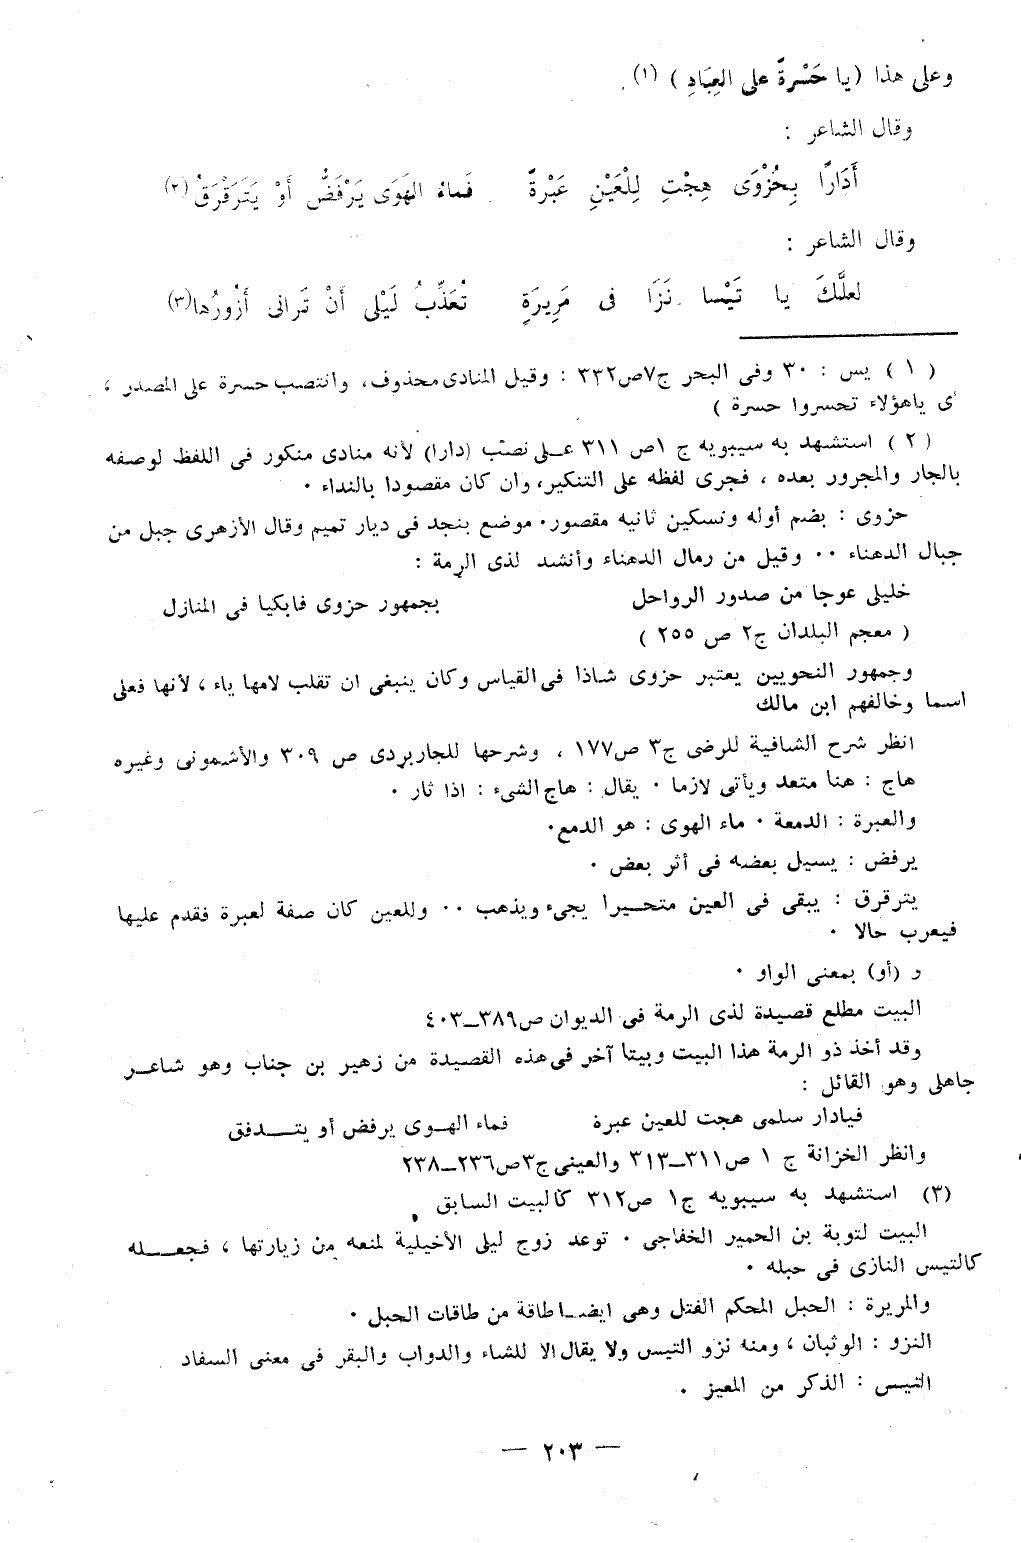 وعلى هذا (يا حَسْرةً على العِبَادِ ) (١).
وقال الشاعر :
أَدَارًا بِحُزْوَى هِجْتِ لِلْعَيْنِ عَبْرةً فَماءُ الهَوَى يَرْفَضُّ أَوْ يَتَرَقْرَقُ(٢)
وقال الشاعر :
لعلَّكَ يا تَيْسا نَزَا فى مَرِيرَةٍ تُعَذِّبُ لَيْلى أَنْ تَرانى أَزُورُها(٣)
( ١ ) يس : ٣٠ وفى البحر ج٧ص٣٣٢ : وقيل المنادى محذوف، وانتصب حسرة على المصدر ،
أى ياهؤلاء تحسروا حسرة )
( ٢ ) استشهد به سيبويه ج ١ص ٣١١ على نصب (دارا) لأنه منادى منكور فى اللفظ لوصفه
بالجار والمجرور بعده ، فجرى لفظه على التنكير، وان كان مقصودا بالنداء ٠
حزوى : بضم أوله وتسكين ثانيه مقصور٠ موضع بنجد فى ديار تميم وقال الأزهرى جبل من
جبال الدهناء ٠٠ وقيل من رمال الدهناء وأنشد لذى الرمة :
خليلى عوجا من صدور الرواحل بجمهور حزوى فابكيا فى المنازل
( معجم البلدان ج٢ ص ٢٥٥ )
وجمهور النحويين يعتبر حزوى شاذا فى القياس وكان ينبغى ان تقلب لامها ياء ، لأنها فعلى
اسما وخالفهم ابن مالك
انظر شرح الشافية للرضى ج٣ ص١٧٧ ، وشرحها للجاربردى ص ٣٠٩ والأشمونى وغيره
هاج : هنا متعد ويأتى لازما ٠ يقال : هاج الشىء : اذا ثار ٠
والعبرة : الدمعة ٠ ماء الهوى : هو الدمع٠
يرفض : يسيل بعضه فى أثر بعض ٠
يترقرق : يبقى فى العين متحيرا يجىء ويذهب ٠٠ وللعين كان صفة لعبرة فقدم عليها
فيعرب حالا ٠
و (أو) بمعنى الواو ٠
البيت مطلع قصيدة لذى الرمة فى الديوان ص٣٨٩ــ٤٠٣
وقد أخذ ذو الرمة هذا البيت وبيتا آخر فى هذه القصيدة من زهير بن جناب وهو شاعر
جاهلى وهو القائل :
فيادار سلمى هجت للعين عبرة فماء الهوى يرفض أو يتدفق
وانظر الخزانة ج ١ ص٣١١ــ٣١٣ والعينى ج٣ص٢٣٦ــ٢٣٨
(٣) استشهد به سيبويه ج١ ص٣١٢ كالبيت السابق
البيت لتوبة بن الحمير الخفاجى ٠ توعد زوج ليلى الأخيلية لمنعه من زيارتها ، فجعله
كالتيس النازى فى حبله ٠
والمريرة : الحبل المحكم الفتل وهى ايضا طاقة من طاقات الحبل ٠
النزو : الوثبان ، ومنه نزو التيس ولا يقال الا للشاء والدواب والبقر فى معنى السفاد
التيس : الذكر من المعيز ٠
— ٢٠٣ —